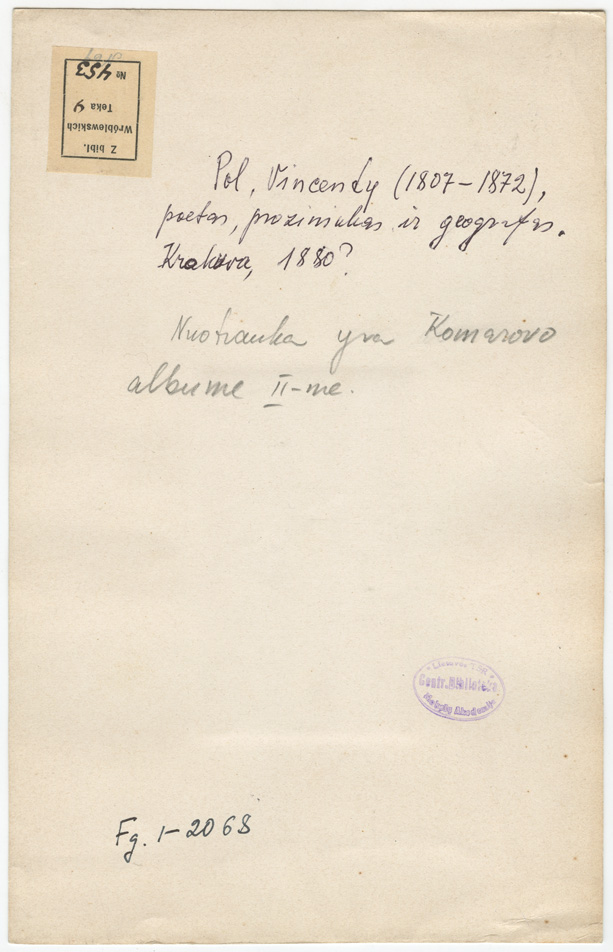 Z bibl.
Wróblewskich
Teka 9
№ 453
Pol, Vincenty (1807-1872),
poetas, prozininkas ir geografas.
Krakova, 1880?
Nuotrauka yra Komarovo
albume II-me.
Centr. Biblioteka
Mokslų Akademija
Fg. 1-2068